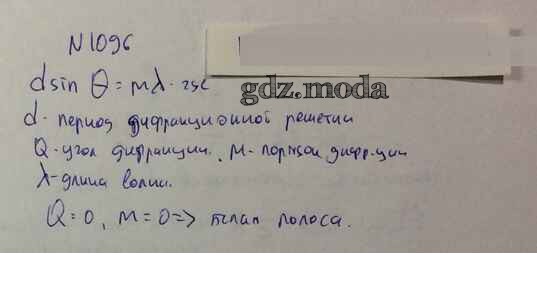 N1096
d sin θ = mλ - где
gdz.moda
d - период дифракционной решетки
Q - угол дифракции. m - порядок дифр-ции
λ - длина волны.
Q = 0, m = 0 => белая полоса.